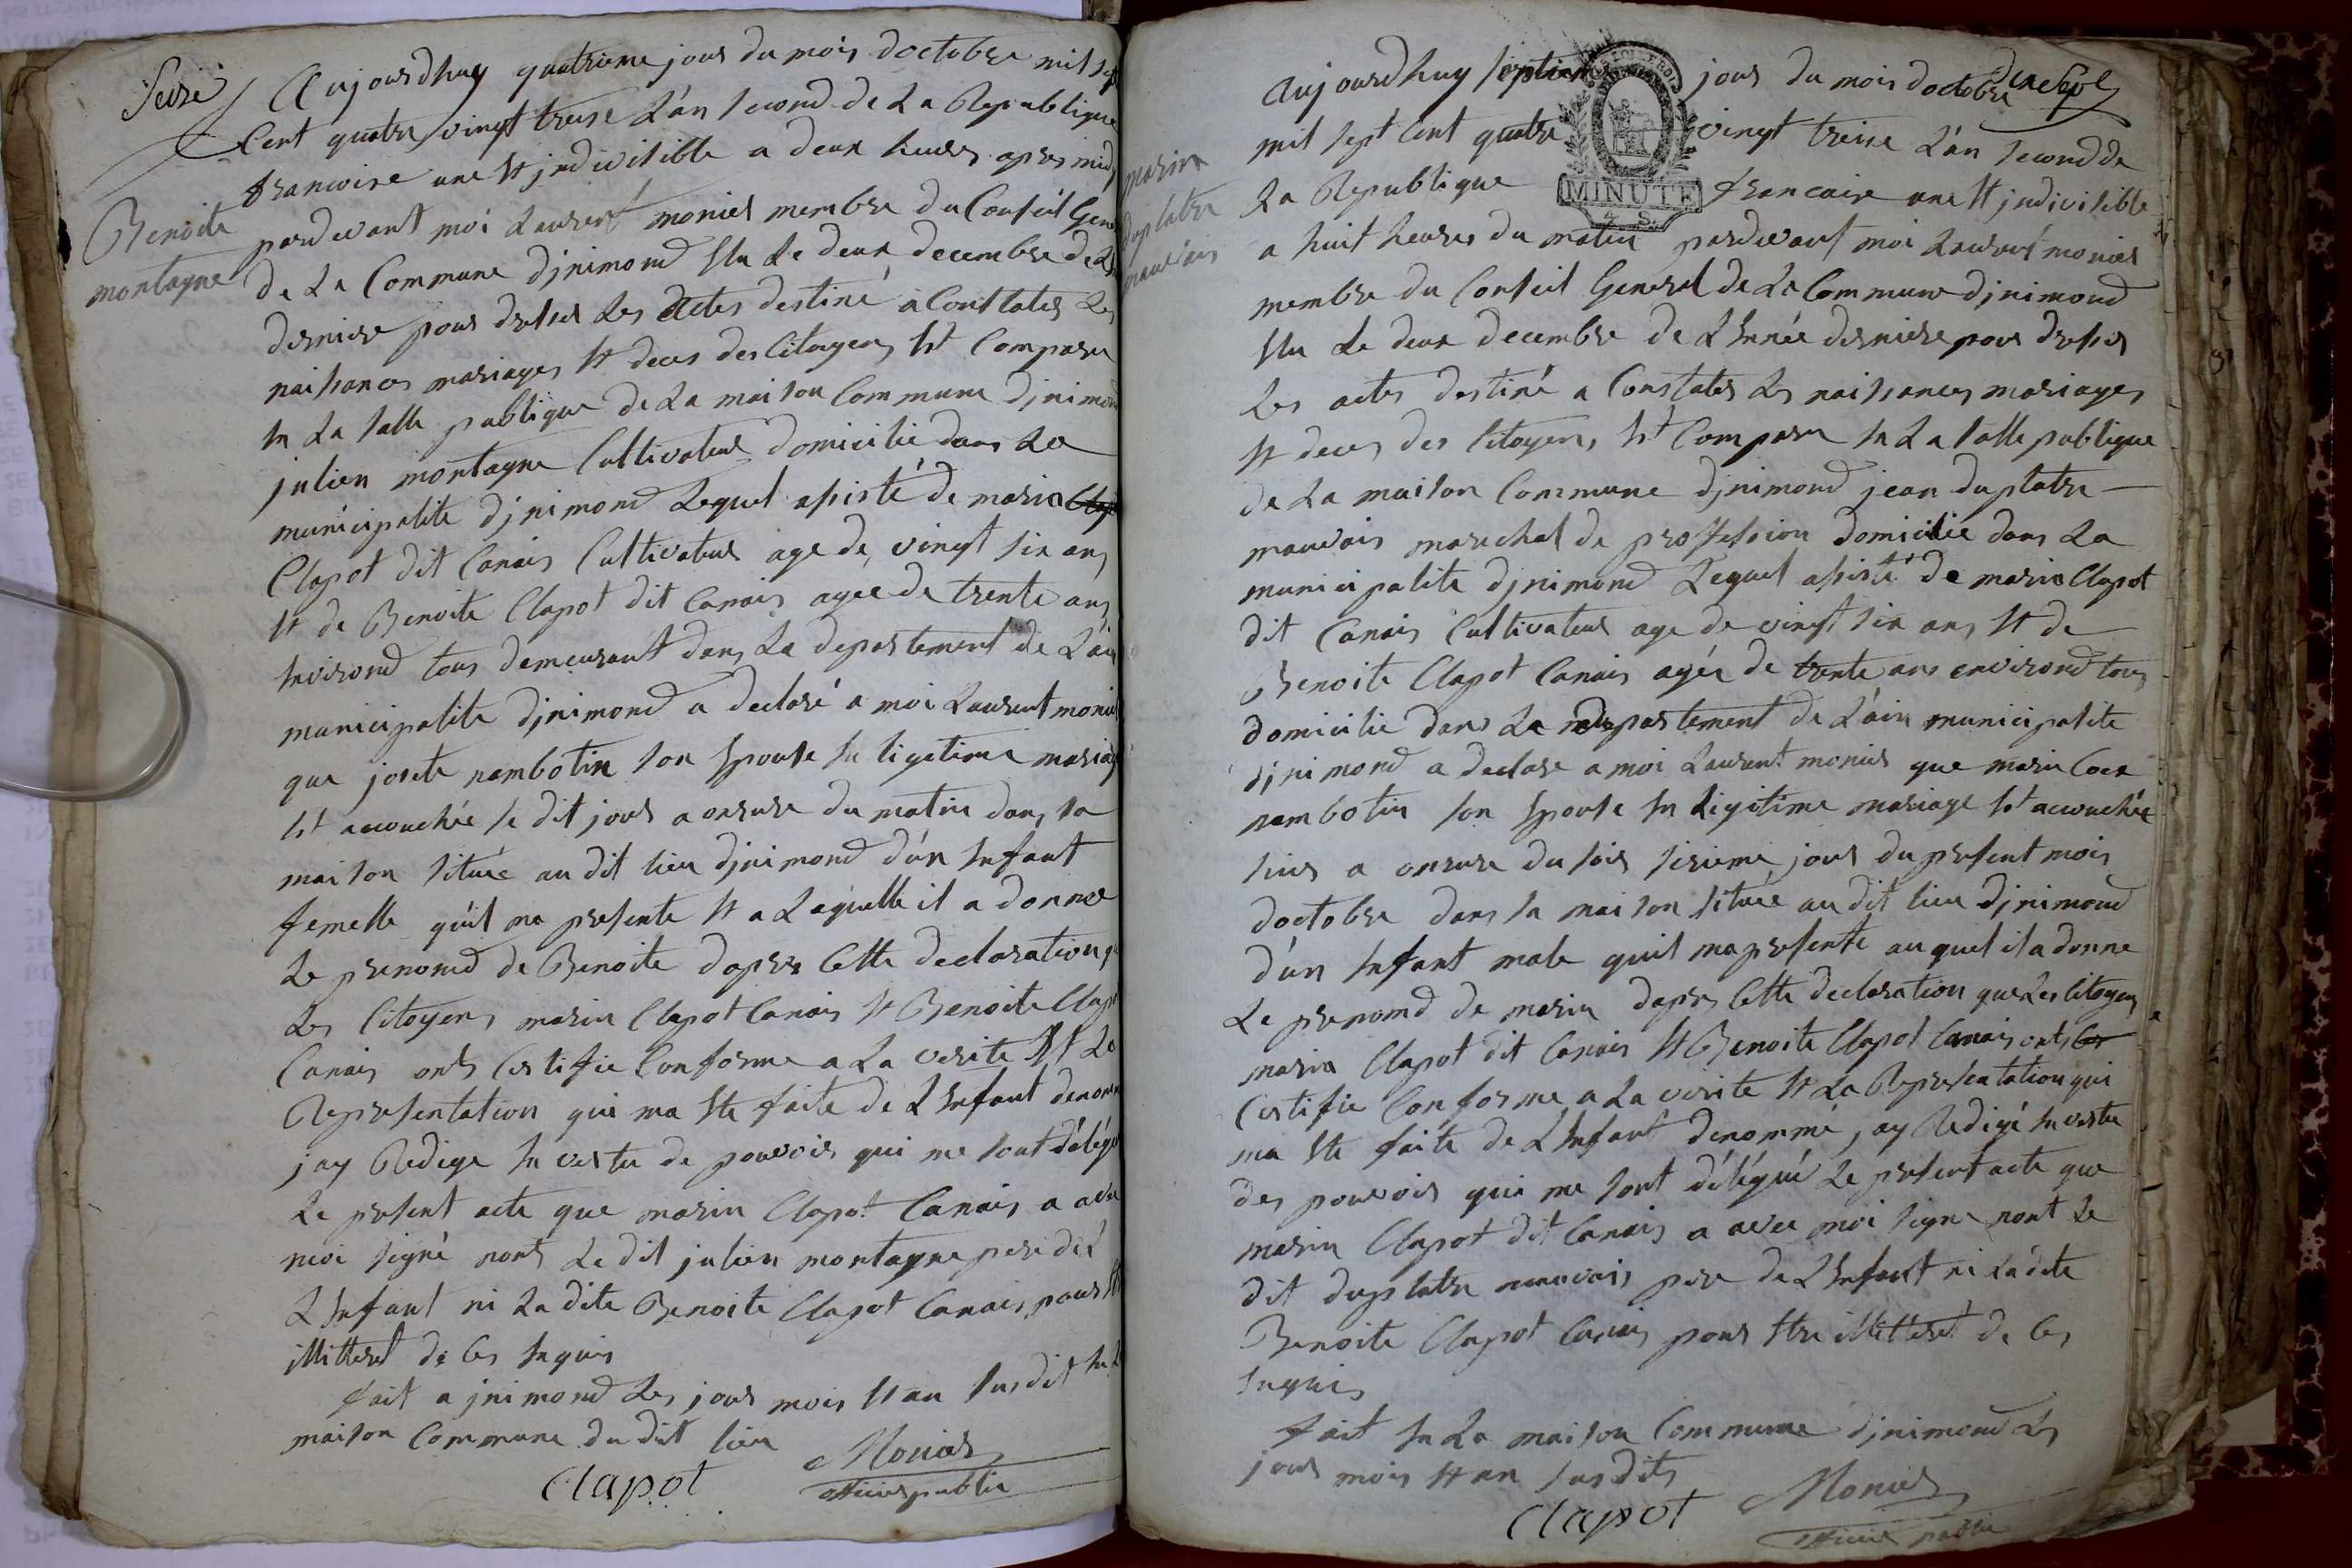 seize
Aujourdhuy quatrieme jour du mois doctobre mil sept
Cent quatre vingt treise L'an second de La Republique
francoise une et jndivisible a deux heures apres midy
pardevant moi Laurent monier membre du Conseil Gene
de La Commune djnimond elu Le deux decembre de La
derniere pour dresser Les Actes destiné a Constater Les
naissances mariages et deces des Citoyens est Comparu
en La salle publique de La maison Commune djnimond
julien montagne Cultivateur domicilié dans La
municipalite djnimond Lequel assisté de marin Clap
Clapot dit Canais Cultivateur age de vingt six ans
et de Benoite Clapot dit Canais agee de trente ans
environd tous demeurant dans La departement de L'ain
municipalite djnimond a declaré a moi Laurent monier
que josete nambotin son epouse en ligetime mariage
est accouchée ce dit jour a onseure du matin dans sa
maison située au dit lieu djnimond d'un enfant
femelle qu'il ma presente et a Laquelle il a donnée
Le prenomd de Benoite d'apres Cette declaration que
Les Citoyens marin Clapot Canais et Benoite Clapot
Canais onts Certifie Conforme a La verite et La
Representation qui ma ete faite de L'enfant denommé
jay Redige en vertu de pouvoir qui me sont délégué
Le present acte que marin Clapot Canais a avec
moi signé nont Le dit julien montagne pere de L
L'enfant ni La dite Benoite Clapot Canais pour etre
illitteret de Ces enquis
fait a jnimond Les jour mois et an susdit en La
maison Commune du dit lieu
Clapot Monier
officier public
Benoite
montagne
dixsept
Aujourdhuy septieme jour du mois doctobre
mil sept Cent quatre vingt treise L'an second de
La Republique francaise une et jndivisible
MINUTE
4 S.
a huit heures du matin pardevant moi Laurent monier
membre du Conseil General de La Commune djnimond
elu Le deux decembre de L'année derniere pour dresser
Les actes destiné a Constater Les naissances mariages
et deces des Citoyens est Comparu en La salle publique
de La maison Commune djnimond jean duplatre
mauvais marechal de proffession domicilié dans La
municipalite djnimond Lequel assisté de marin Clapot
dit Canais Cultivateur age de vingt six ans et de
Benoite Clapot Canais agée de trente ans environd tous
domicilie dans La departement de L'ain municipalite
djnimond a declare a moi Laurent monier que marie
nambotin son epouse en Ligitime mariage est accouchée
hier a onseure du soir sixieme jour du present mois
doctobre dans sa maison située au dit lieu djnimond
d'un enfant male quil ma presenté au quel il a donne
Le prenomd de marin dapres Cette declaration que Les Citoyens
marin Clapot dit Canais et Benoite Clapot Canais onts Cer
Certifie Conforme a La verite et La Representation qui
ma ete faite de L'enfant denommé jay Redigé en vertu
des pouvoir qui me sont délégué Le present acte que
marin Clapot dit Canais a avec moi signe nont Le
dit duplatre mauvais pere de L'enfant ni La dite
Benoite Clapot Canais pour etre illitteret de Ces
enquis
fait en La maison Commune djnimond Les
jour mois et an susdits
Clapot Monier
officier public
marin
duplatre
mauvais